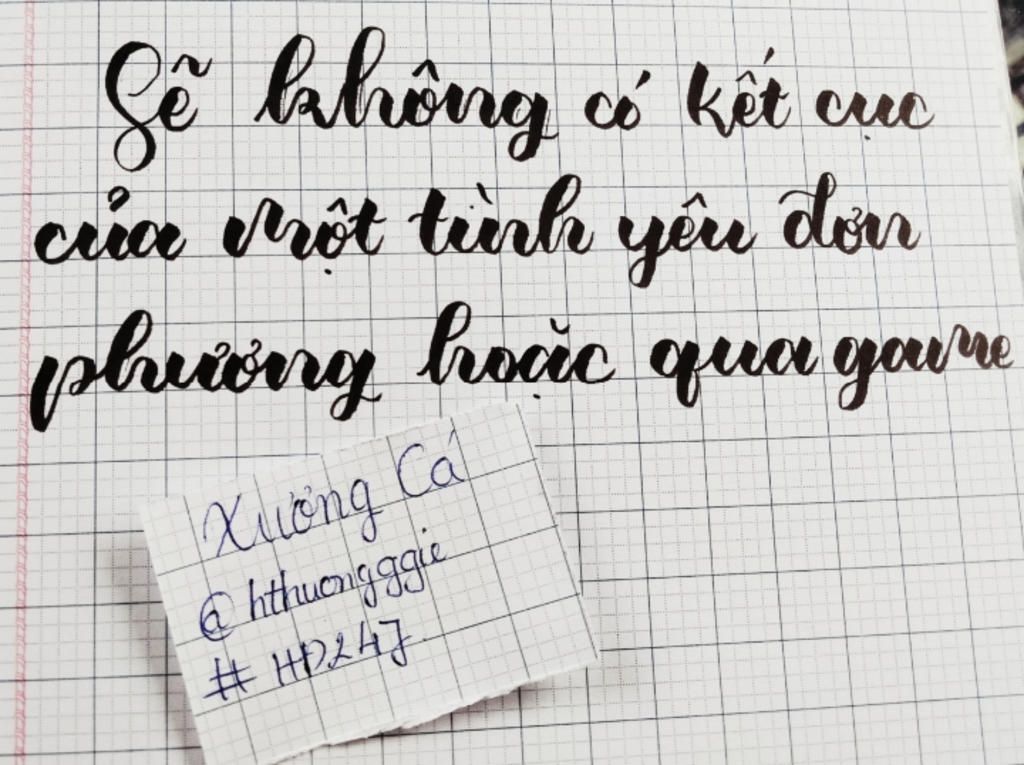 Sẽ không có kết cục
của một tình yêu đơn
phương hoặc qua game
Xương Cá
@hthuongggie
#HD24J